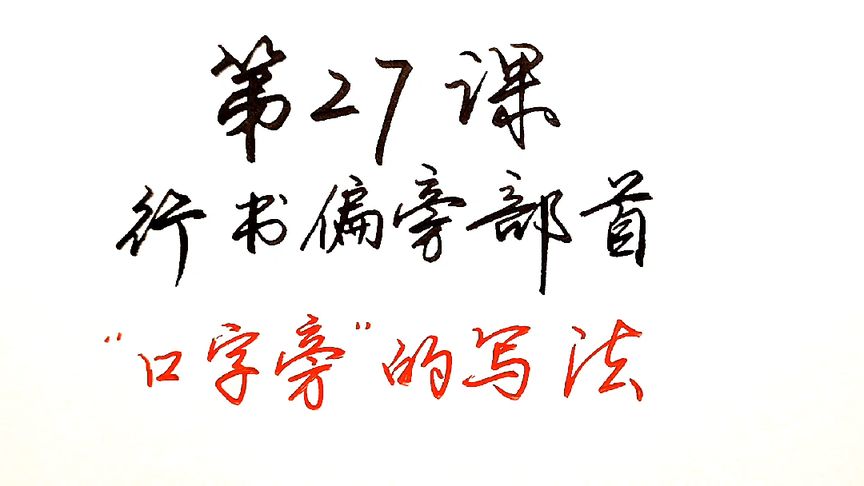 第27课
行书偏旁部首
“口字旁”的写法